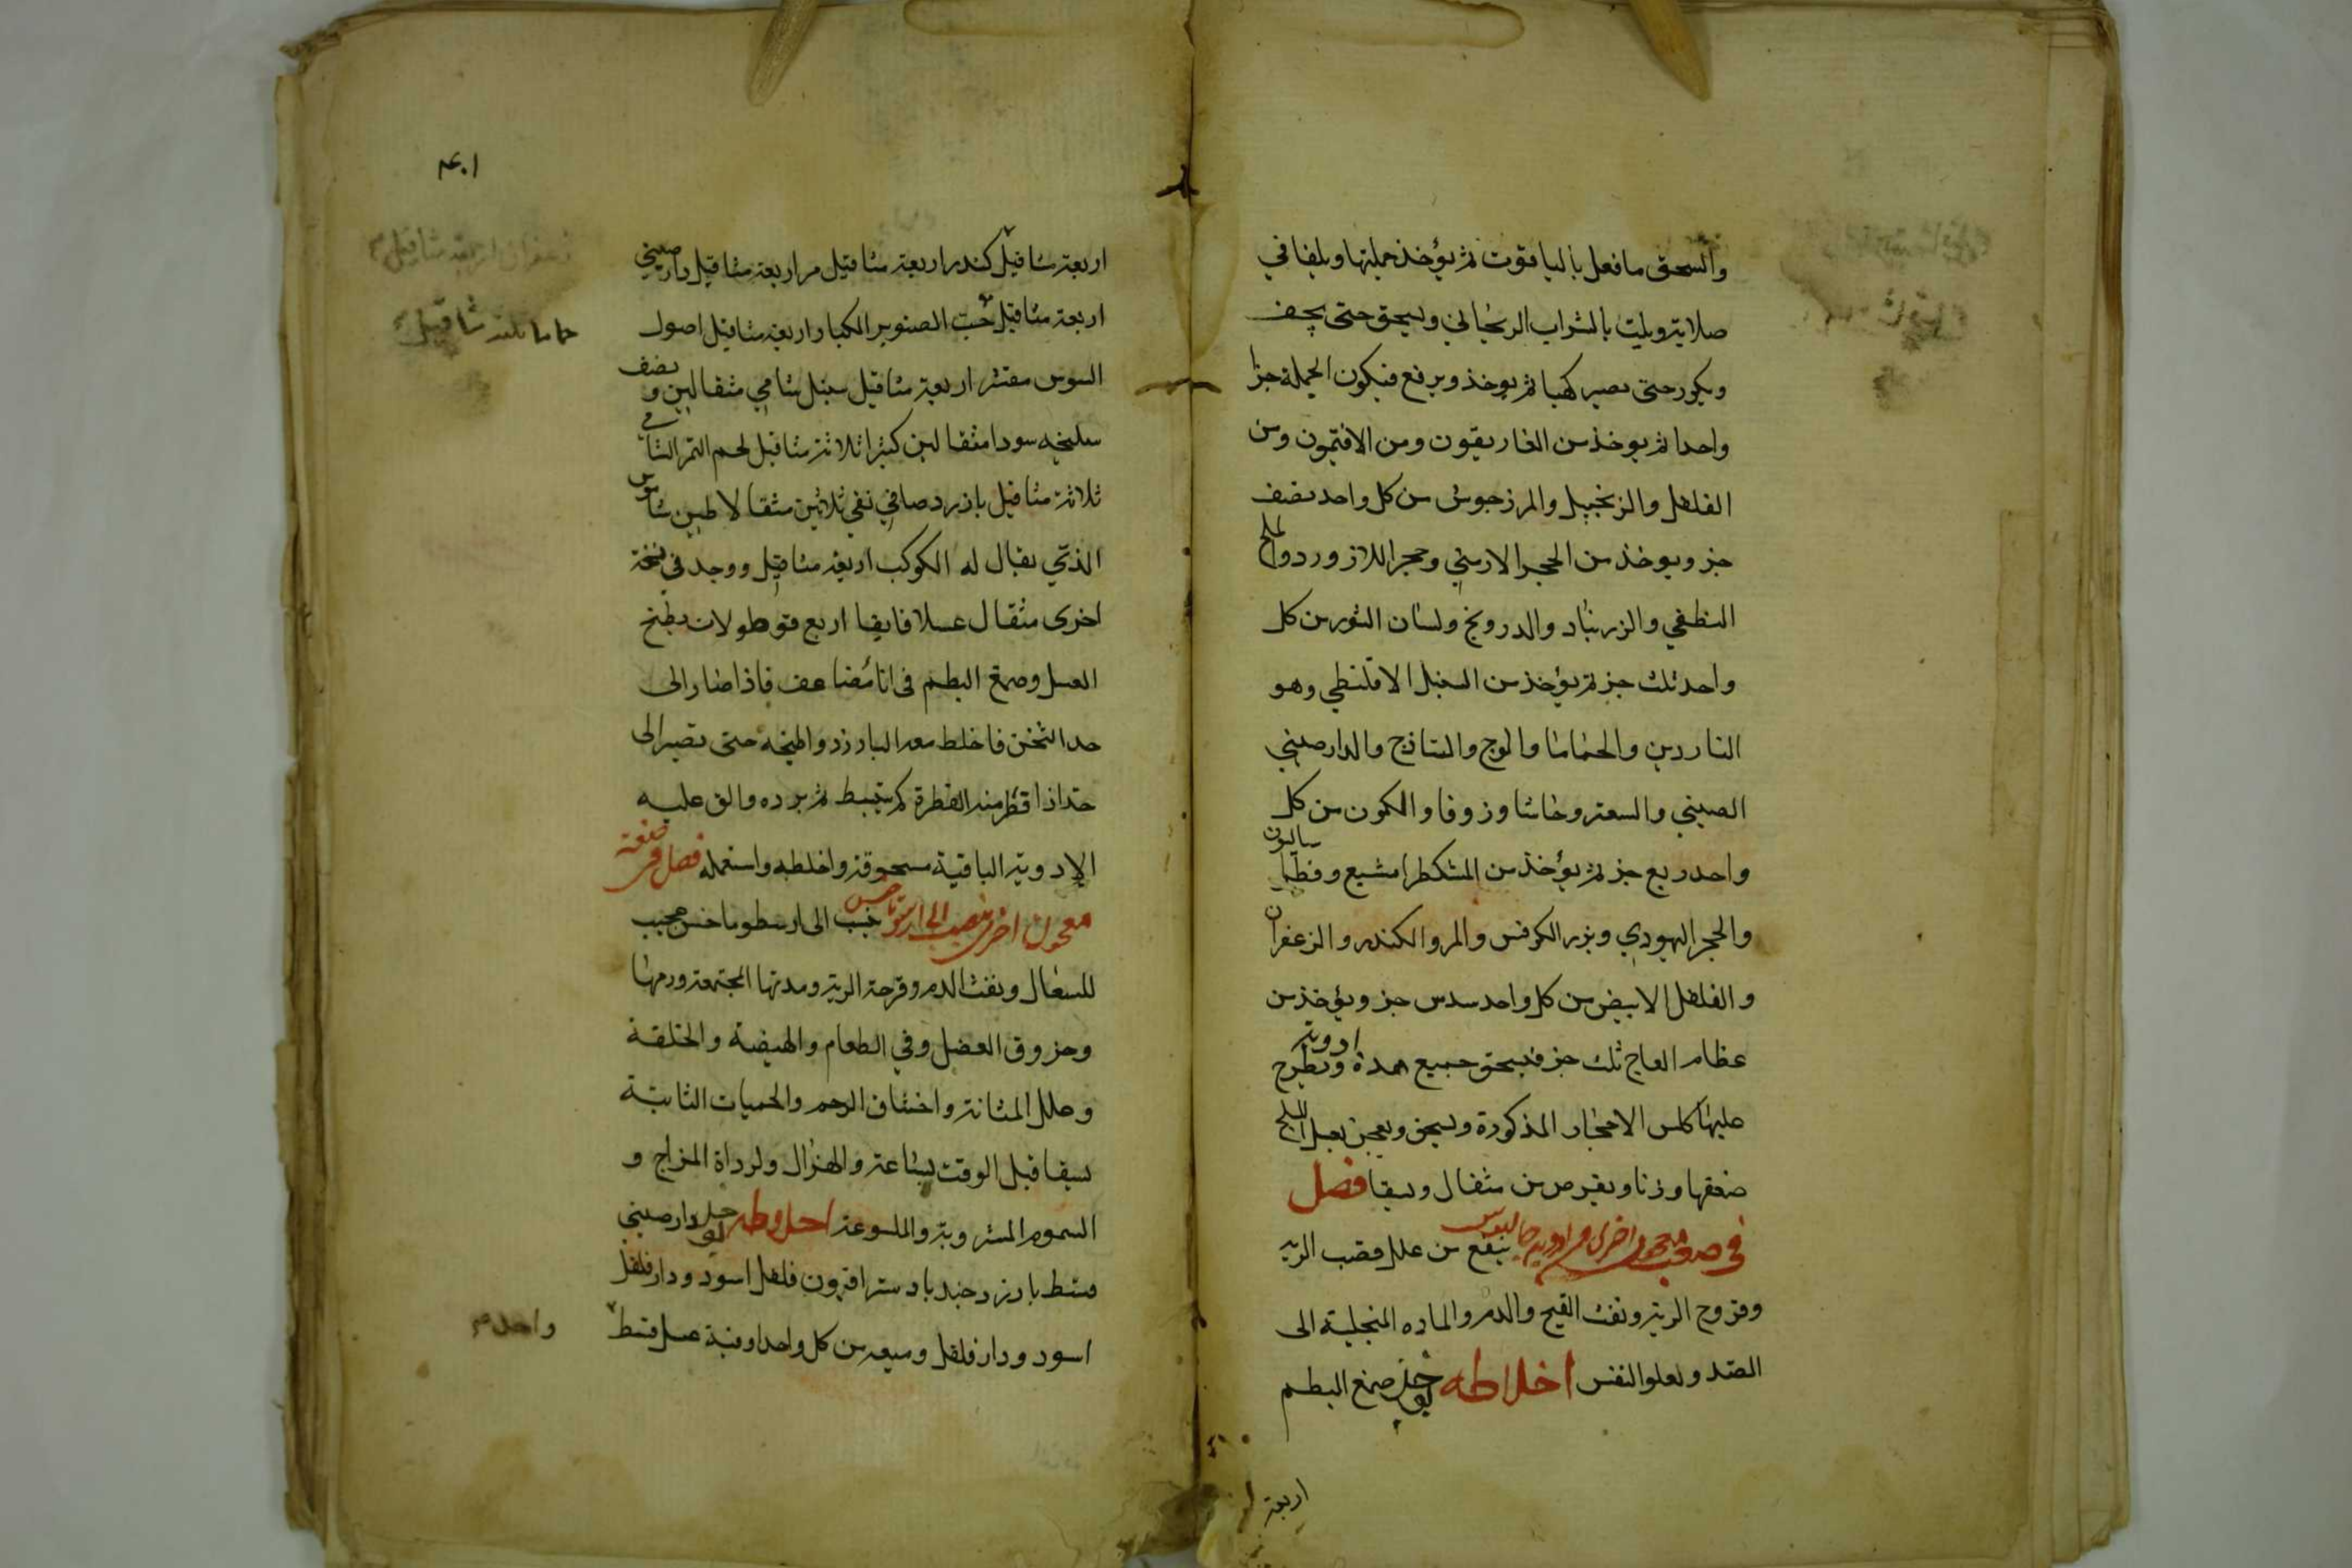 والسحق ما فعل بالياقوت ثم يؤخذ جملتها ويلقا في
صلاية ويليت بالشراب الريحاني ويسحق حتى يجف
ويكور حتى يصير كهبا ثم يوخذ ويرفع فيكون الجملة جزا
واحدا ثم يوخذ من الغاريقون ومن الافتيمون ومن
الفلفل والزنجبيل والمرزجوش من كل واحد نصف
جز ويوخذ من الحجر الارمني وحجر اللازورد والملح
النطفي والزرنباد والدرونج ولسان الثور من كل
واحد ثلث جز ثم يؤخذ من السنبل الاقلنطي وهو
الناردين والحماما والوج والساذج والدارصيني
الصيني والسعتر وحاشا وزوفا والكمون من كل
واحد ربع جز ثم يؤخذ من المشكطرامشيع وفطراساليون
والحجر اليهودي وبزر الكرفس والمر والكندر والزعفران
والفلفل الابيض من كل واحد سدس جز ويؤخذ من
عظام العاج ثلث جز فيسحق جميع هذه ادوية ويطرح
عليها كلس الاحجار المذكورة ويسحق ويعجن بعسل
ضعفها وزنا ويقرص من مثقال ويسقا فصل
في صفة معجون اخرى من ادوية جالينوس ينفع من علل قصب الرية
وقروح الرية ونفث القيح والدم والماده المنجلبة الى
الصدر ولعلو النفس اخلاطه صمغ البطم
اربعة
١٠٤
اربعة مثاقيل كندر اربعة مثاقيل مر اربعة مثاقيل دارصيني
زعفران اربعة مثاقيل
اربعة مثاقيل حب الصنوبر الكبار اربعة مثاقيل اصول
حماما ثلثة مثاقيل
السوس مقشر اربعة مثاقيل سنبل شامي مثقالين ونصف
سليخه سودا مثقالين كثيرا ثلاثة مثاقيل لحم التمر الشامي
ثلاثة مثاقيل بازرد صافي نقي ثلاثين مثقالا طين شاموس
الذي يقال له الكوكب اربعة مثاقيل ووجد في نسخة
اخرى مثقال عسلا فايقا اربع قوطولات يطبخ
العسل وصمغ البطم في انا مضاعف فاذا صار الى
حد الثخن فاخلط معه البارزد واطبخه حتى تصير الى
حد اذا قطر منه القطرة لم ينبسط ثم برده والق عليه
الادوية الباقية مسحوقة واخلطه واستعمله فصل في صفة
معجون اخرى ينسب الى ارسطوماخس ينسب الى ارسطوماخس عجيب
للسعال ونفث الدم وقرحة الرية ومدتها المجتمعة ورمها
وحزوق العضل وفي الطعام والهيضة والخلقة
وعلل المثانة واختناق الرحم والحميات الثابتة
يسقا قبل الوقت بساعة والهزال ولرداة المزاج و
السموم المشروبة والملسوعة اخلاطه دارصيني
قسط بارزد جندبادستر افيون فلفل اسود ودارفلفل
اسود ودارفلفل وميعه من كل واحد اوقية عسل قسط
واحد